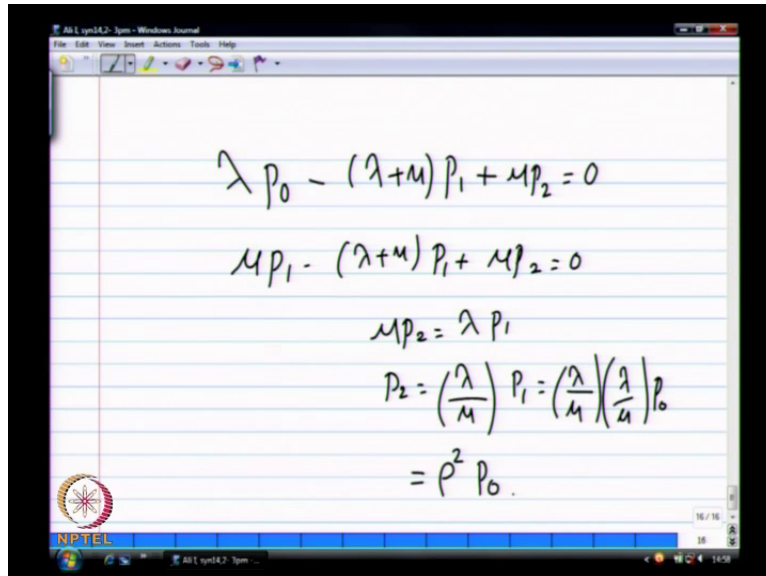 Ali I, syn14,2- 3pm - Windows Journal
File Edit View Insert Actions Tools Help
λ p₀ - (λ+μ) p₁ + μp₂ = 0
μp₁ - (λ+μ) p₁ + μp₂ = 0
μp₂ = λ p₁
p₂ = (λ/μ) p₁ = (λ/μ)(λ/μ) p₀
= ρ² p₀.
16 / 16
16
NPTEL
Ali I, syn14,2- 3pm -...
14:58